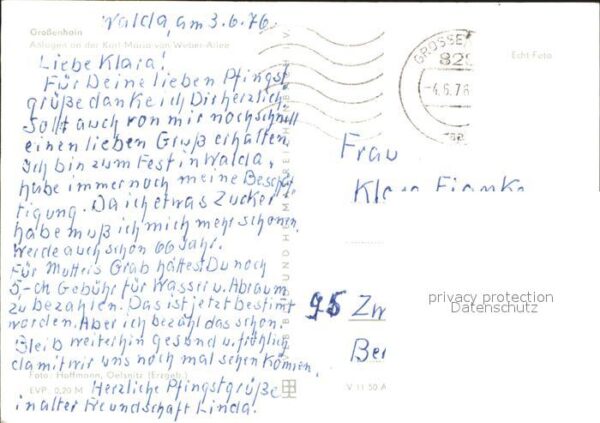 Walda, am 3.6.76
Großenhain
Anlagen an der Karl-Maria-von-Weber-Allee
Liebe Klara!
Für Deine lieben Pfingst
grüße danke ich Dir herzlich.
Sollt auch von mir noch schnell
einen lieben Gruß erhalten.
Ich bin zum Fest in Walda,
habe immer noch meine Beschäf
tigung. Da ich etwas Zucker
habe muß ich mich mehr schonen.
Werde auch schon 66 Jahr.
Für Muttels Grab hättest Du noch
5,- Gebühr für Wasser u. Abraum
zu bezahlen. Das ist jetzt bestimt
worden. Aber ich bezahl das schon.
Bleib weiterhin gesund u. fröhlich
damit wir uns noch mal sehen können.
Foto: Hoffmann, Oelsnitz (Erzgeb.)
Herzliche Pfingstgrüße
EVP: 0,20 M
in alter Freundschaft Linda.
V 11 50 A
GROSSEN
829
-4.6.76
Echt Foto
Frau
95 Zw
Be
privacy protection
Datenschutz